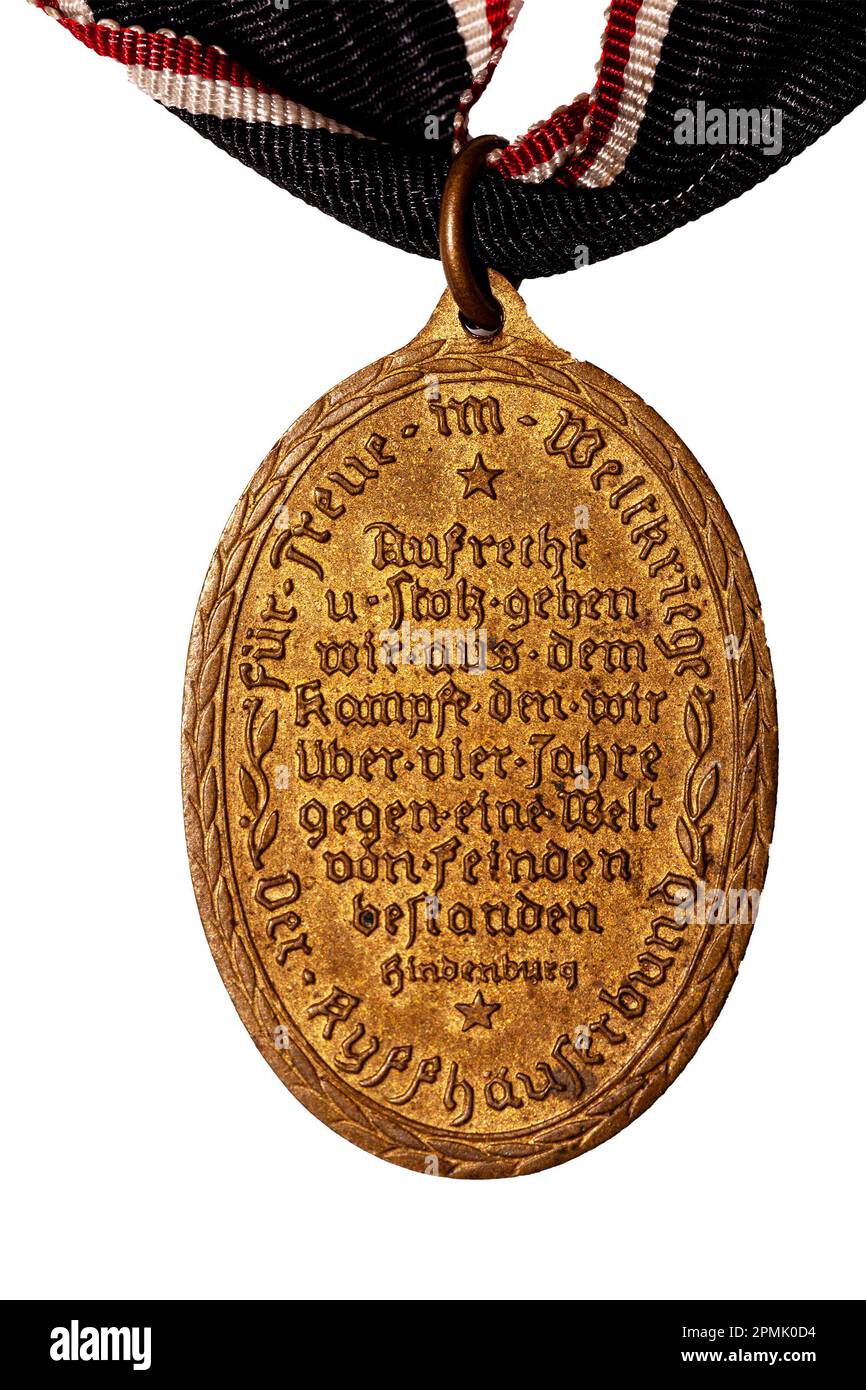 für · Treue - im - Weltkriege
Aufrecht
u · stolz · gehen
wir · aus · dem
Kampfe · den · wir
über · vier · Jahre
gegen · eine · Welt
von · Feinden
bestanden
Hindenburg
Der · Kyffhäuserbund
alamy
Image ID: 2PMK0D4
www.alamy.com